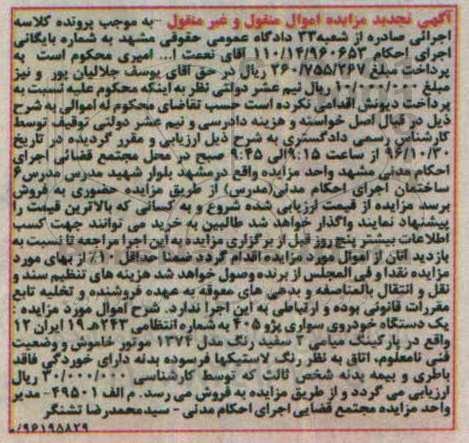 آگهی تجدید مزایده اموال منقول و غیر منقول - به موجب پرونده کلاسه
اجرائی صادره از شعبه ۳۳ دادگاه عمومی حقوقی مشهد به شماره بایگانی
اجرای احکام ۱۱۰/۱۴/۹۶۰۶۵۳ آقای نعمت ا... امیری محکوم است به
پرداخت مبلغ ۲۶۰/۷۵۵/۲۶۷ ریال در حق آقای یوسف جلالیان پور و نیز
مبلغ ۱۰/۰۰۰/۰۰۰ ریال نیم عشر دولتی نظر به اینکه محکوم علیه نسبت به
پرداخت دیونش اقدامی نکرده است حسب تقاضای محکوم له اموالی به شرح
ذیل در قبال اصل خواسته و هزینه دادرسی و نیم عشر دولتی توقیف توسط
کارشناس رسمی دادگستری به شرح ذیل ارزیابی و مقرر گردیده در تاریخ
۹۶/۱۰/۳۰ از ساعت ۹:۱۵ الی ۹:۴۵ صبح در محل مجتمع قضائی اجرای
احکام مدنی مشهد واحد مزایده واقع درمشهد بلوار شهید مدرس مدرس۶
ساختمان اجرای احکام مدنی(مدرس) از طریق مزایده حضوری به فروش
برسد مزایده از قیمت ارزیابی شده شروع و به کسانی که بالاترین قیمت را
پیشنهاد نمایند واگذار خواهد شد طالبین به خرید می توانند جهت کسب
اطلاعات بیشتر پنج روز قبل از برگزاری مزایده به این اجرا مراجعه تا نسبت به
بازدید آنان از اموال مورد مزایده اقدام گردد ضمنا حداقل ۱۰٪ از بهای مورد
مزایده نقدا و فی المجلس از برنده وصول خواهد شد هزینه های تنظیم سند و
نقل و انتقال بالمناصفه و بدهی های معوقه به عهده فروشنده و تخلیه تابع
مقررات قانونی بوده و ارتباطی به این اجرا ندارد. شرح اموال مورد مزایده :
یک دستگاه خودروی سواری پژو ۴۰۵ به شماره انتظامی ۲۴۳هـ ۱۹ ایران ۱۲
واقع در پارکینگ میامی ۲ سفید رنگ مدل ۱۳۷۴ موتور خاموش و وضعیت
فنی نامعلوم، اتاق به نظر رنگ لاستیکها فرسوده بدنه دارای خوردگی فاقد
باطری و بیمه بدنه شخص ثالث که توسط کارشناسی ۳۰/۰۰۰/۰۰۰ ریال
ارزیابی می گردد و از طریق مزایده به فروش می رسد. م الف ۴۹۵۰۱ - مدیر
واحد مزایده مجتمع قضایی اجرای احکام مدنی - سیدمحمدرضا تشنگر
/۹۶۱۹۸۸۲۹